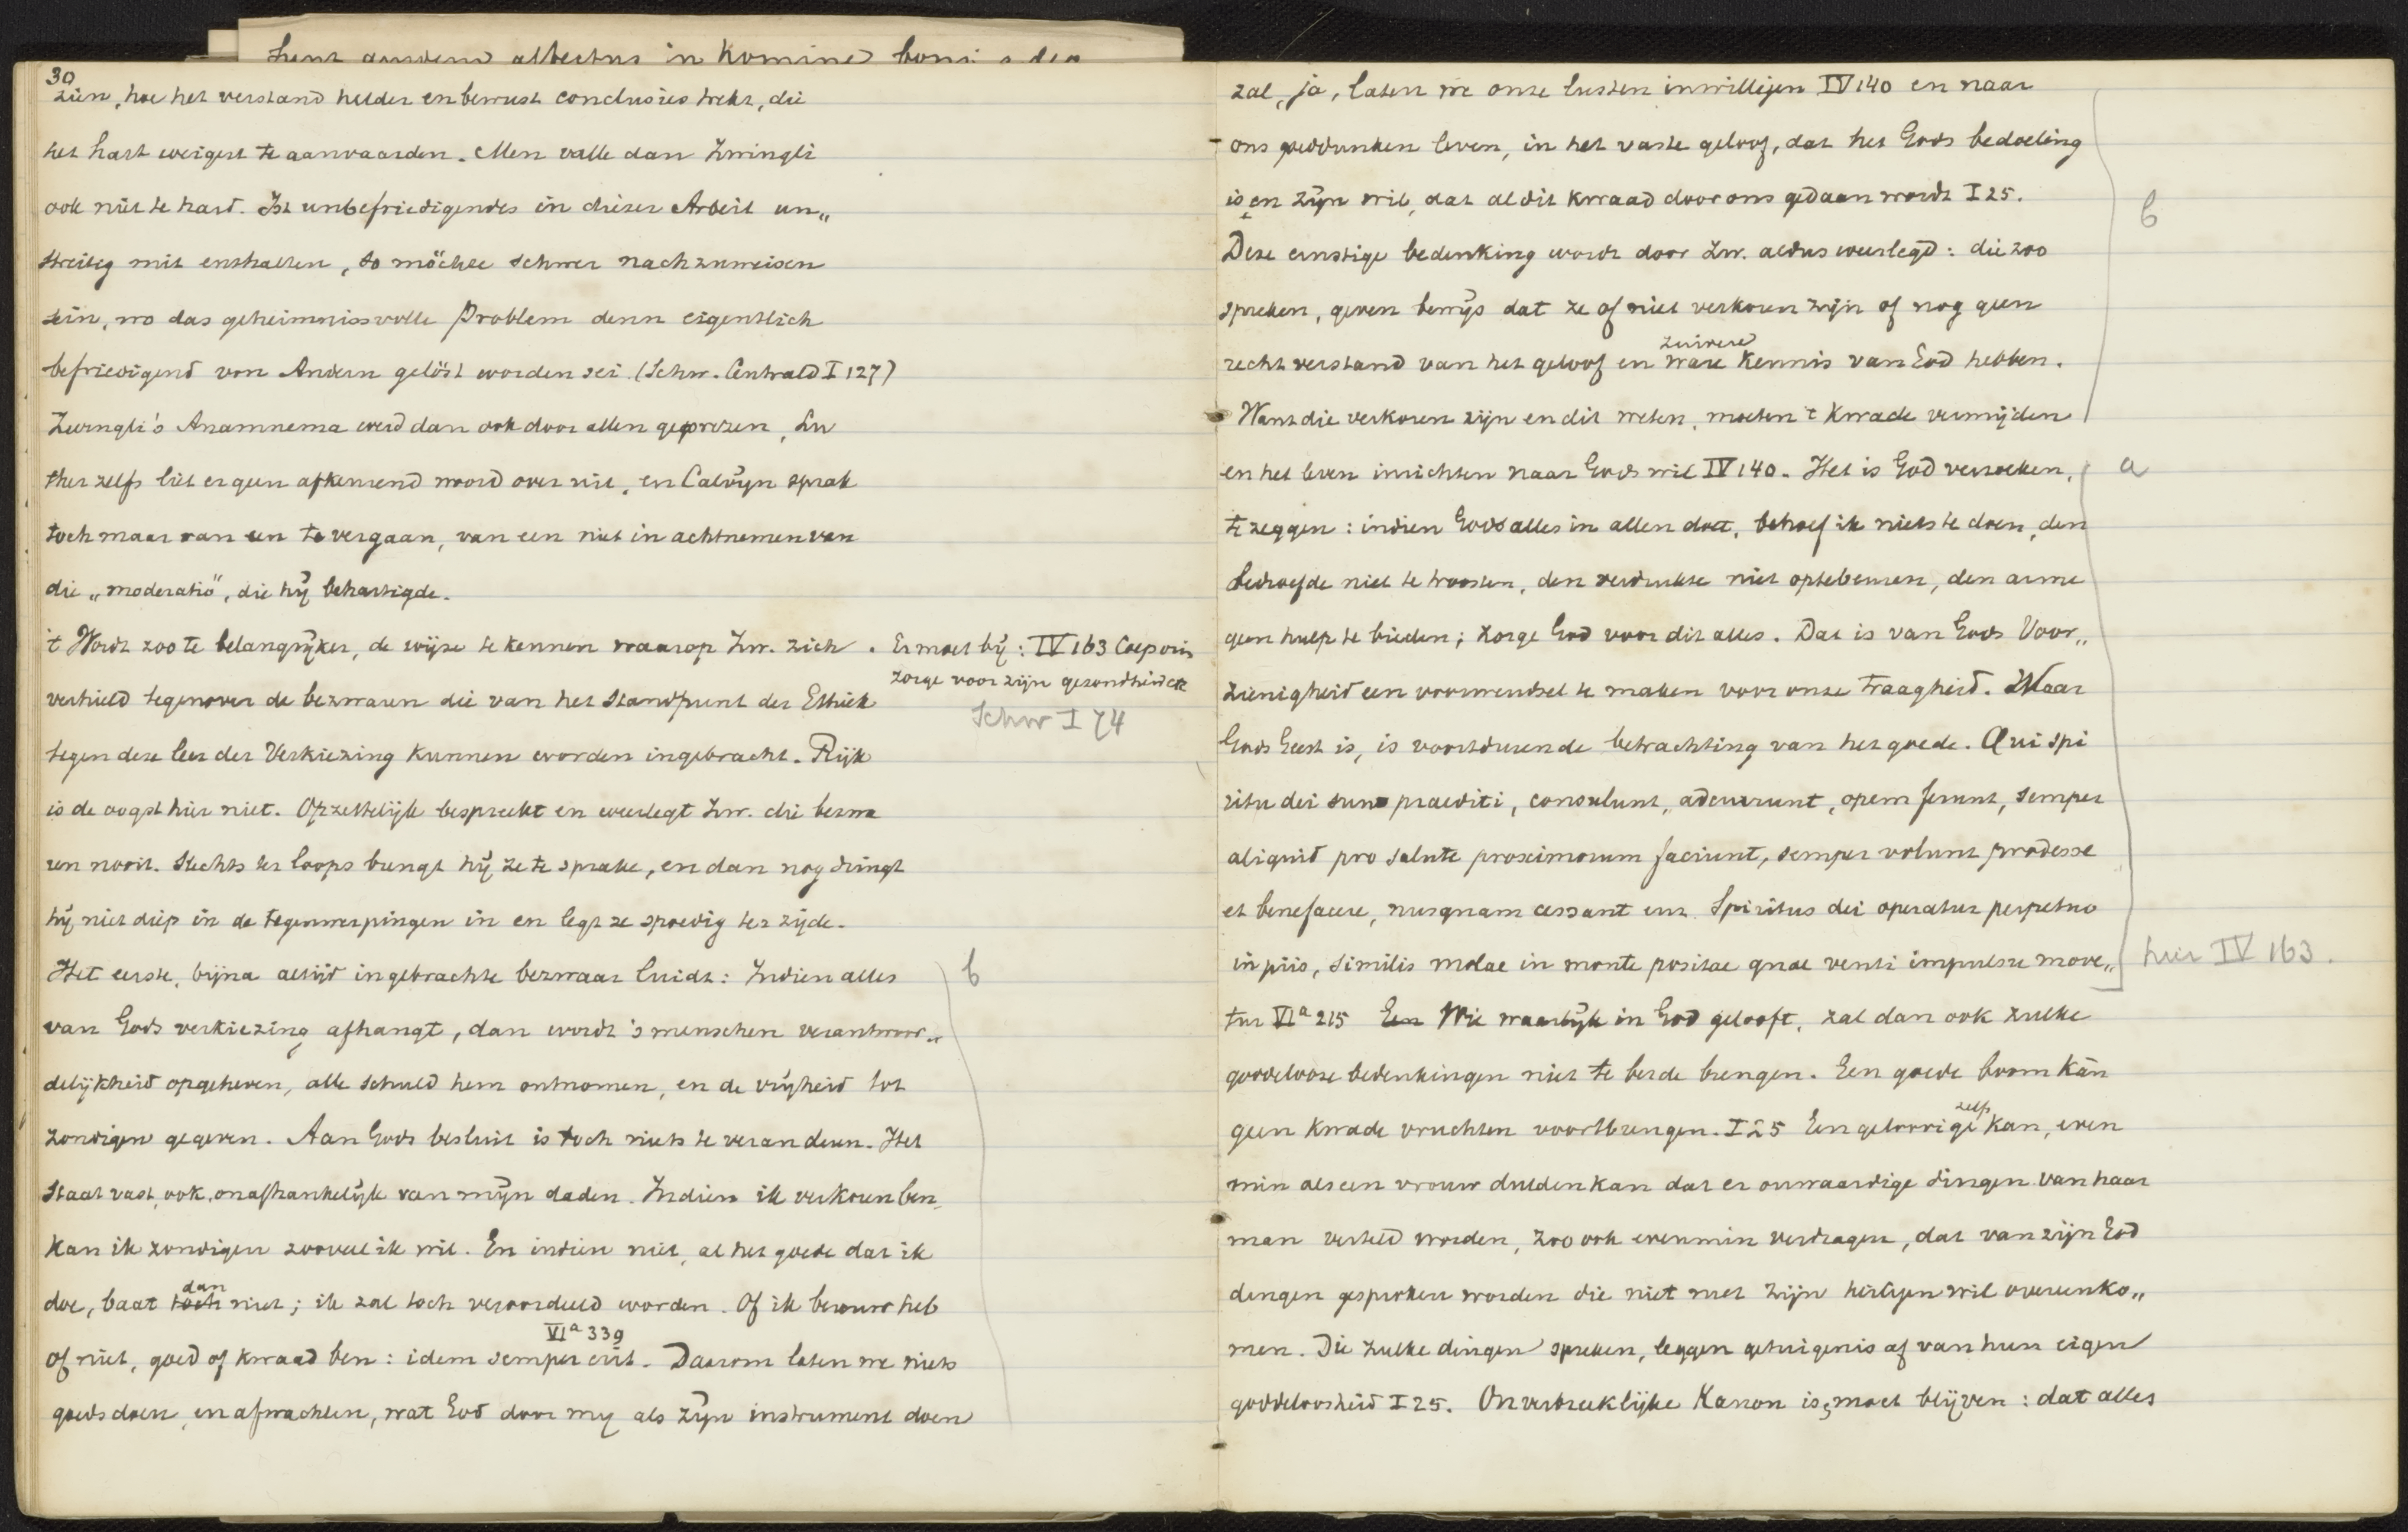 30
zien, hoe het verstand helder en bewust conclusies trekt, die
het hart weigert te aanvaarden. Men valle dan Zwingli
ook niet te hard. Ist unbefriedigendes in dieser Arbeit un„
streitig mit enthalten, so möchte schwer nachzuweisen
sein, wo das geheimnissvolle Problem denn eigentlich
befriedigend von Andern gelöst worden sei. (Schw. Centrald I 127)
Zwingli's Anamnema werd dan ook door allen geprezen, Lu
ther zelfs liet er geen afkeurend woord over uit, en Calvijn sprak
toch maar van een te vergaan, van een niet in achtnemen van
die „moderatio", die hij behartigde.
't Wordt zoo te belangrijker, de wijze te kennen waarop Zw. zich
verhield tegenover de bezwaren die van het standpunt der Ethiek
tegen deze leer der Verkiezing kunnen worden ingebracht. Rijk
is de oogst hier niet. Opzettelijk bespreekt en weerlegt Zw. die bezwa
ren nooit. Slechts ter loops brengt hij ze te sprake, en dan nog dringt
hij niet diep in de tegenwerpingen in en legt ze spoedig ter zijde.
Het eerste, bijna altijd ingebrachte bezwaar luidt: Indien alles
van Gods verkiezing afhangt, dan wordt 's menschen verantwoor„
delijkheid opgeheven, alle schuld hem ontnomen, en de vrijheid tot
zondigen gegeven. Aan Gods besluit is toch niets te veranderen. Het
staat vast, ook onafhankelijk van mijn daden. Indien ik verkoren ben,
kan ik zondigen zooveel ik wil. En indien niet, al het goede dat ik
doe, baat toch dan niet; ik zal toch veroordeeld worden. Of ik berouw heb
of niet, goed of kwaad ben: idem semper erit. VIa 339 Daarom laten we niets
goeds doen, en afwachten, wat God door mij als zijn instrument doen
. Er moet bij: IV 163 Corporis
zorge voor zijn gezondheid etc
Schw I 74
b
zal, ja, laten we onze lusten inwilligen IV 140 en naar
ons goeddunken leven, in het vaste geloof, dat het Gods bedoeling
is en zijn wil, dat al dit kwaad door ons gedaan wordt I 25.
Deze ernstige bedenking wordt door Zw. aldus weerlegd: die zoo
spreken, geven bewijs dat ze of niet verkoren zijn of nog geen
recht verstand van het geloof en zuivere ware kennis van God hebben.
Want die verkoren zijn en dit weten, moeten 't kwade vermijden
en het leven inrichten naar Gods wil IV 140. Het is God verzoeken,
te zeggen: indien God alles in allen doet, behoef ik niets te doen, den
bedroefde niet te troosten, den verdrukte niet optebeuren, den arme
geen hulp te bieden; zorge God voor dit alles. Dat is van Gods Voor„
zienigheid een voorwendsel te maken voor onze traagheid. Waar
Gods Geest is, is voortdurende betrachting van het goede. Qui spi
ritu dei sunt praediti, consulunt, adcurrunt, opem ferunt, semper
aliquid pro salute proximorum faciunt, semper volunt prodesse
et benefacere, nusquam cessant enz. Spiritus dei operatur perpetuo
in piis, similis molae in monte positae quae venti impulsu move„
tur VIa 215 Een Wie waarlijk in God gelooft, zal dan ook zulke
goddelooze bedenkingen niet te berde brengen. Een goede boom kan
geen kwade vruchten voortbrengen. I 25 Een geloovige zelfs kan, even
min als een vrouw dulden kan dat er onwaardige dingen van haar
man verteld worden, zoo ook evenmin verdragen, dat van zijn God
dingen gesproken worden die niet met zijn heiligen wil overeenko„
men. Die zulke dingen spreken, leggen getuigenis af van hun eigen
goddeloosheid I 25. Onverbreeklijke Kanon is, moet blijven: dat alles
b
a
hier IV 163.